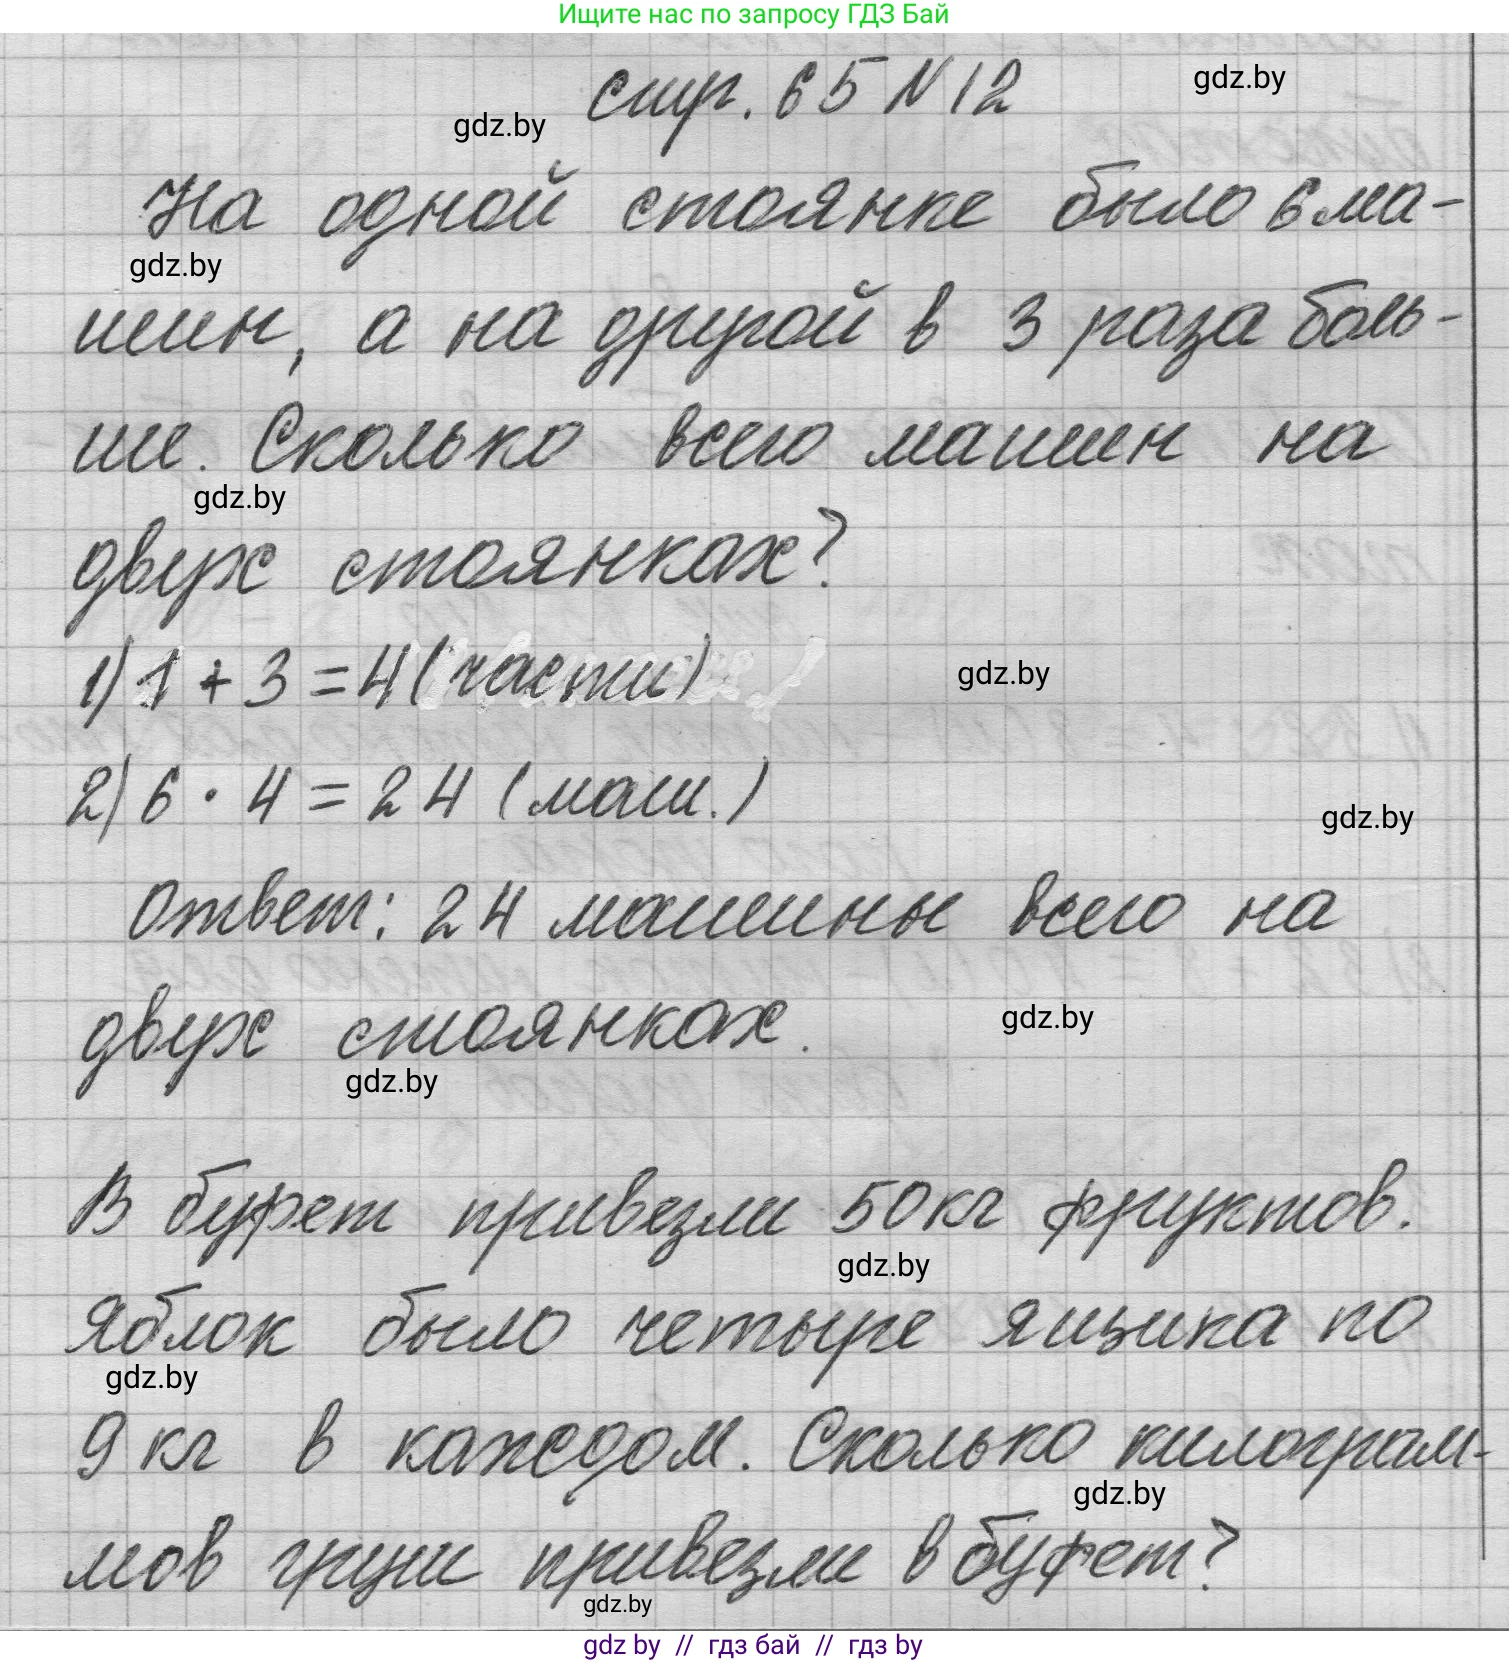 Ищите нас по запросу ГДЗ Бай
стр. 65 N 12
gdz.by
gdz.by
На одной стоянке было 6 ма-
gdz.by
шин, а на другой в 3 раза боль-
ше. Сколько всего машин на
gdz.by
двух стоянках?
1) 1 + 3 = 4 (части)
gdz.by
2) 6 · 4 = 24 (маш.)
gdz.by
Ответ: 24 машины всего на
двух стоянках.
gdz.by
gdz.by
В буфет привезли 50 кг фруктов.
gdz.by
Яблок было четыре ящика по
gdz.by
9 кг в каждом. Сколько килограм-
gdz.by
мов груш привезли в буфет?
gdz.by
gdz by // гдз бай // гдз by